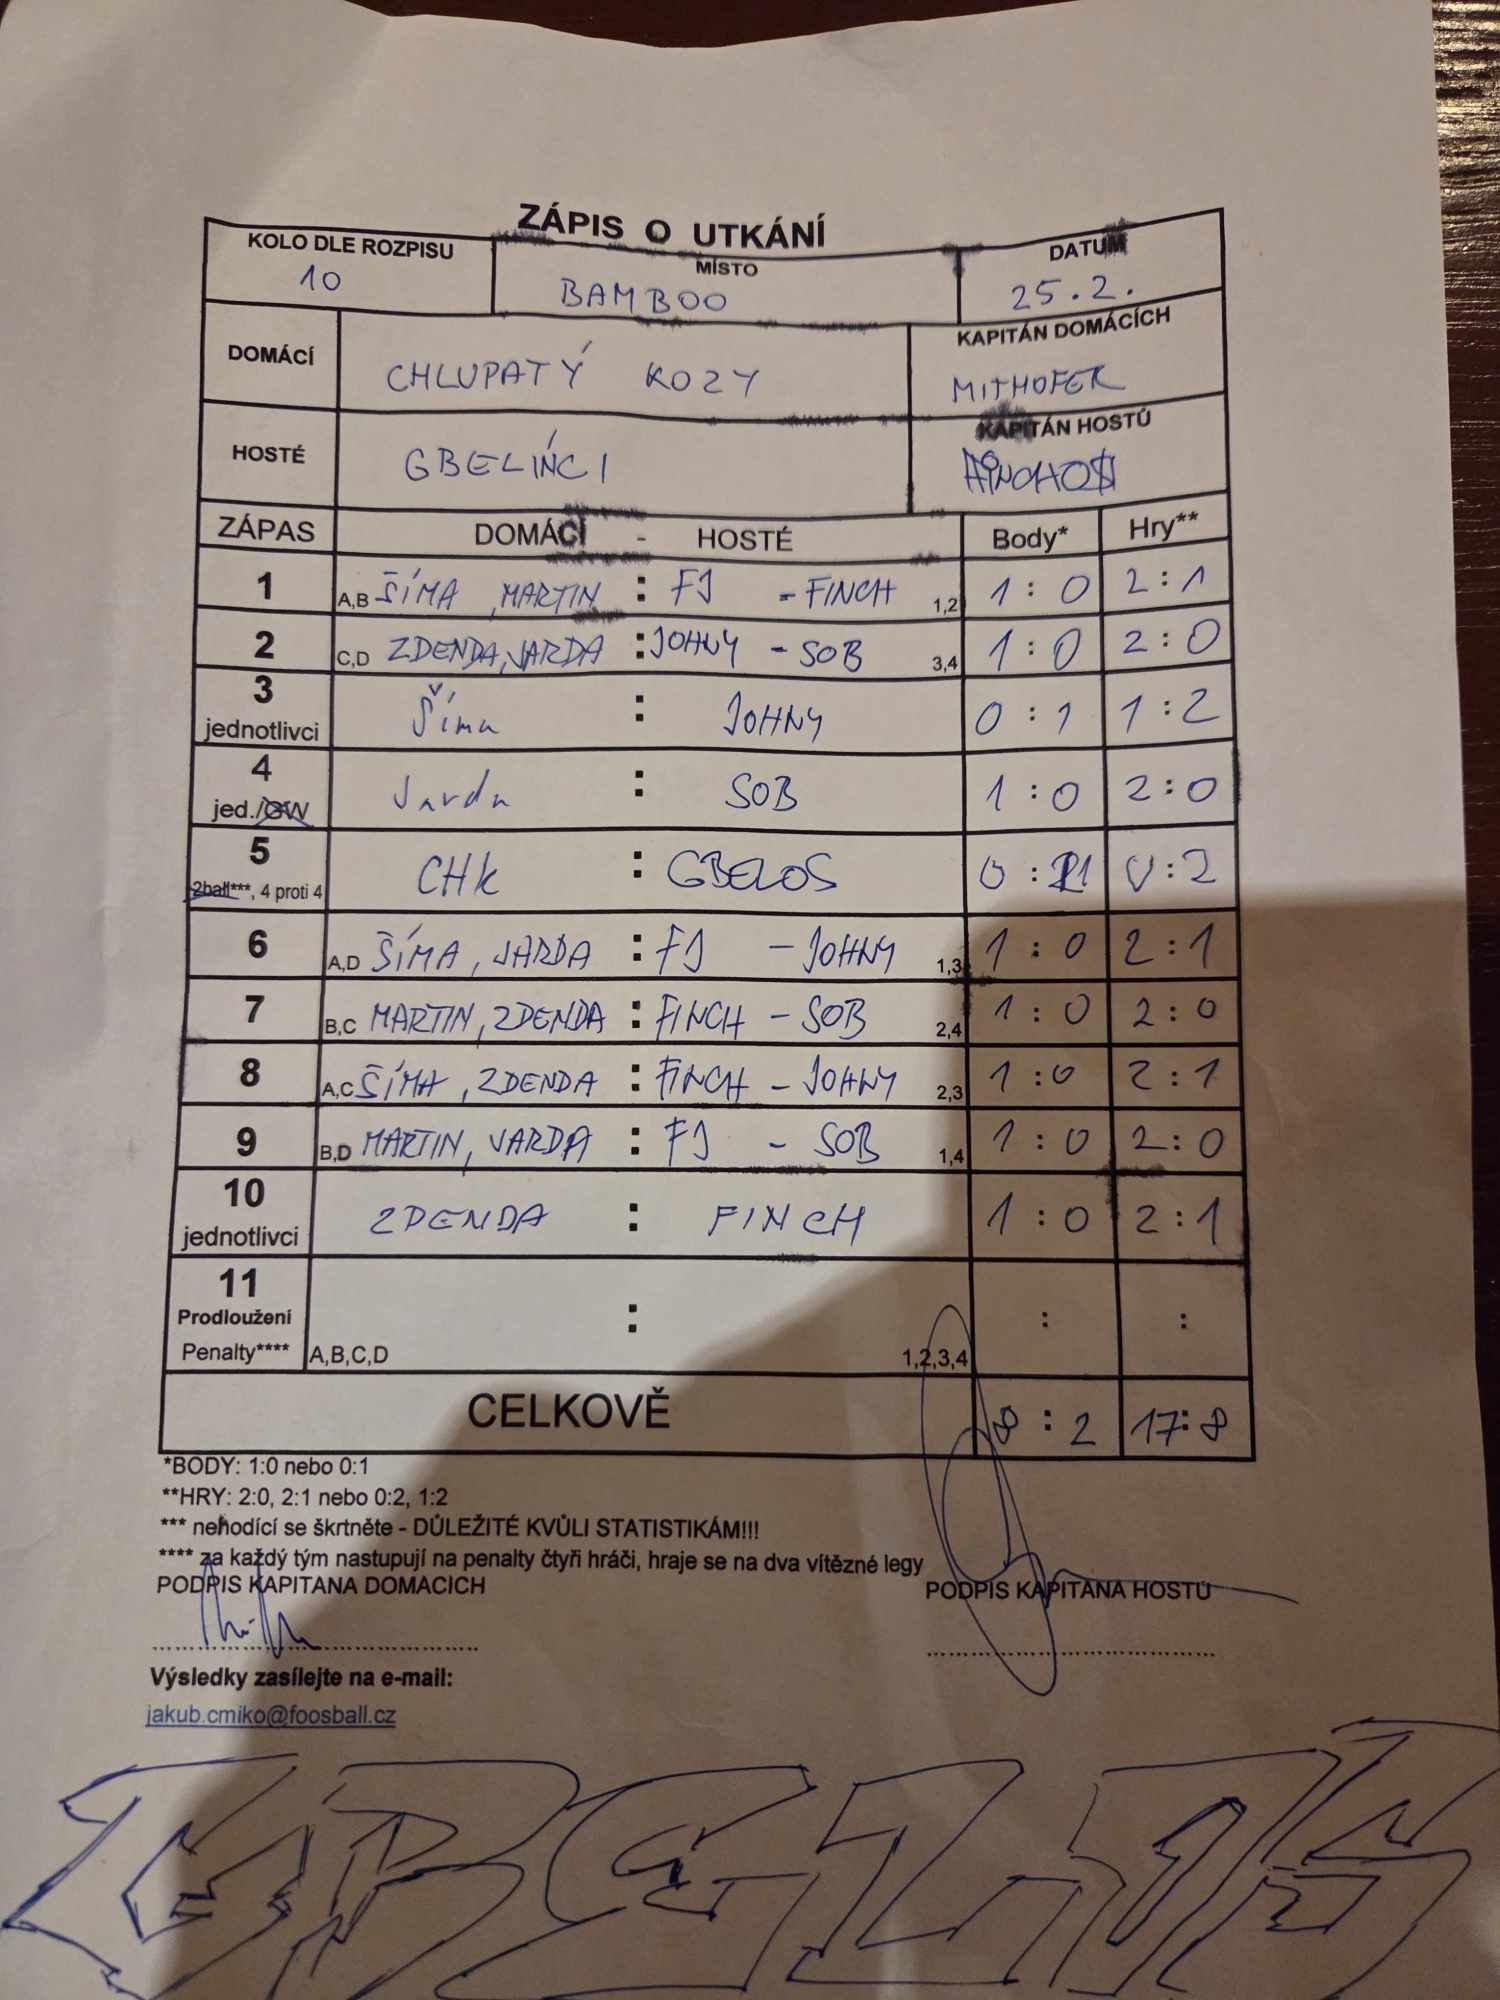 ZÁPIS O UTKÁNÍ
KOLO DLE ROZPISU MÍSTO DATUM
10 BAMBOO 25.2.
DOMÁCÍ CHLUPATÝ KOZY KAPITÁN DOMÁCÍCH
MITHOFER
HOSTÉ GBELÍNCI KAPITÁN HOSTŮ
ZÁPAS DOMÁCÍ - HOSTÉ Body* Hry**
1 A,B ŠÍMA, MARTIN : FJ - FINCH 1,2 1 : 0 2 : 1
2 C,D ZDENDA, JARDA : JOHNY - SOB 3,4 1 : 0 2 : 0
3 jednotlivci Šíma : JOHNY 0 : 1 1 : 2
4 jed./GW Jarda : SOB 1 : 0 2 : 0
5 2ball***, 4 proti 4 CHK : GBELOS 0 : 1 0 : 2
6 A,D ŠÍMA, JARDA : FJ - JOHNY 1,3 1 : 0 2 : 1
7 B,C MARTIN, ZDENDA : FINCH - SOB 2,4 1 : 0 2 : 0
8 A,C ŠÍMA, ZDENDA : FINCH - JOHNY 2,3 1 : 0 2 : 1
9 B,D MARTIN, JARDA : FJ - SOB 1,4 1 : 0 2 : 0
10 jednotlivci ZDENDA : FINCH 1 : 0 2 : 1
11
Prodloužení : : :
Penalty**** A,B,C,D 1,2,3,4
CELKOVĚ 8 : 2 17 : 8
*BODY: 1:0 nebo 0:1
**HRY: 2:0, 2:1 nebo 0:2, 1:2
*** nehodící se škrtněte - DŮLEŽITÉ KVŮLI STATISTIKÁM!!!
**** za každý tým nastupují na penalty čtyři hráči, hraje se na dva vítězné legy
PODPIS KAPITÁNA DOMÁCÍCH PODPIS KAPITÁNA HOSTŮ
Výsledky zasílejte na e-mail:
jakub.cmiko@foosball.cz
GBELOS